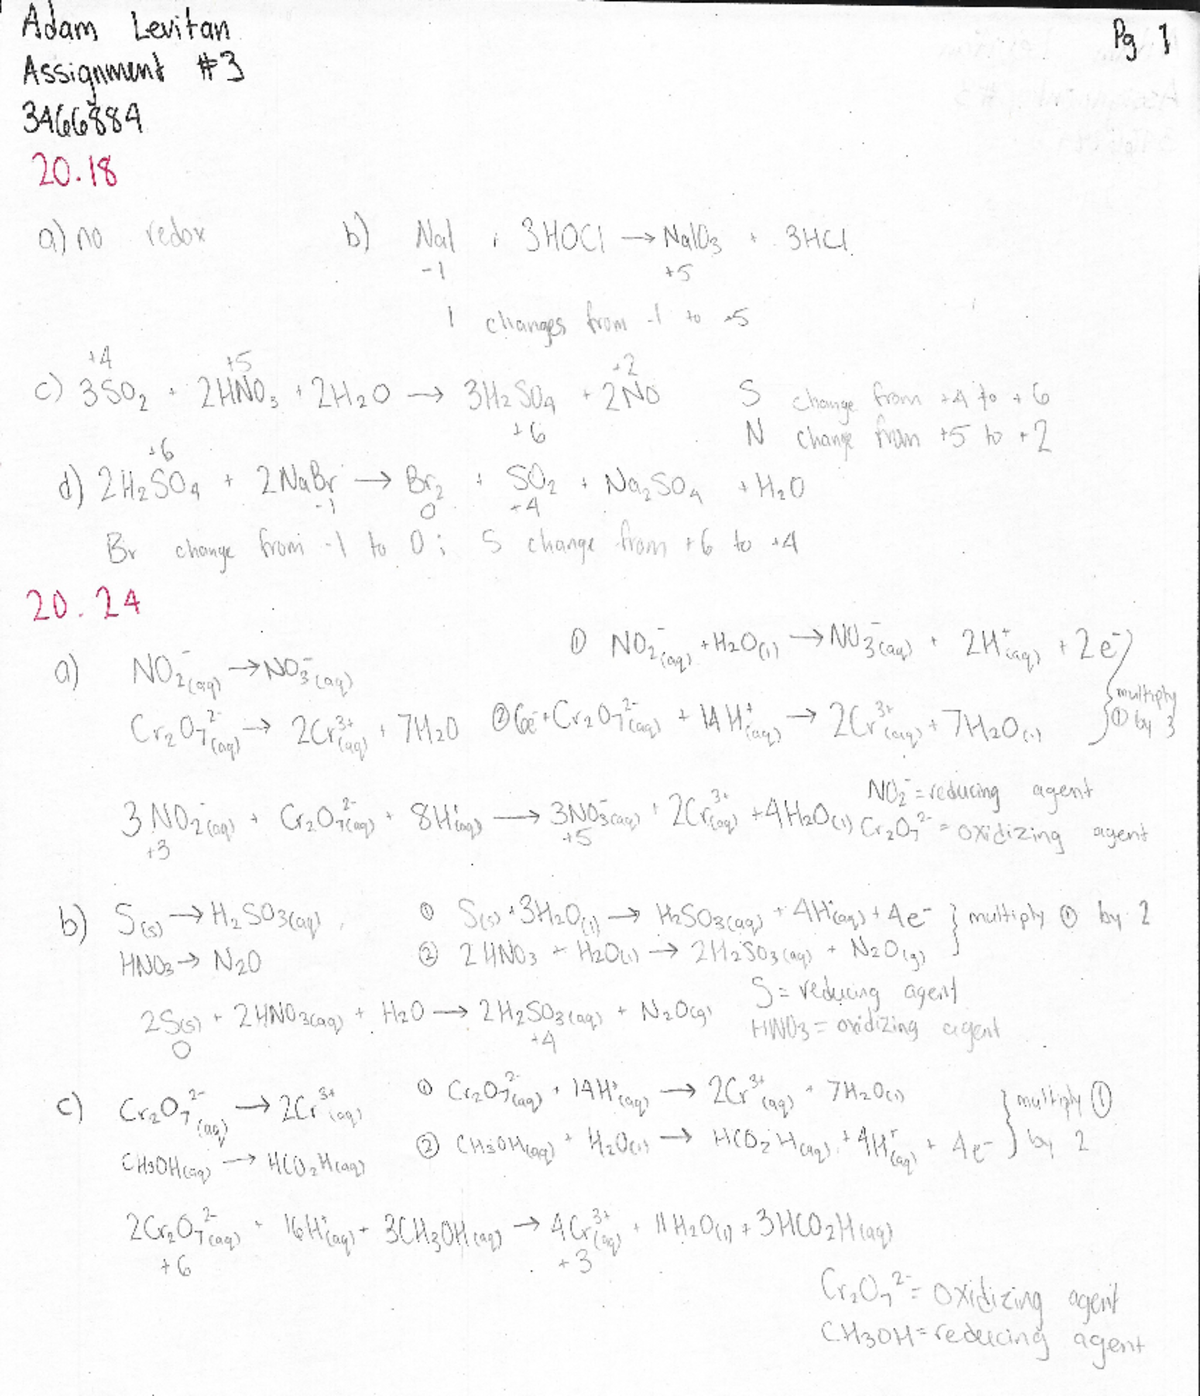 Adam Levitan
Pg 1
Assignment #3
3466884
20.18
a) no redox
b) NaI + 3HOCl → NaIO3 + 3HCl
-1 +5
I changes from -1 to +5
+4 +5 +2
c) 3SO2 + 2HNO3 + 2H2O → 3H2SO4 + 2NO
+6
S change from +4 to +6
N change from +5 to +2
+6
d) 2H2SO4 + 2NaBr → Br2 + SO2 + Na2SO4 + H2O
-1 0 +4
Br change from -1 to 0; S change from +6 to +4
20.24
a) NO2⁻(aq) → NO3⁻(aq)
① NO2⁻(aq) + H2O(l) → NO3⁻(aq) + 2H⁺(aq) + 2e⁻
Cr2O7²⁻(aq) → 2Cr³⁺(aq) + 7H2O
② 6e⁻ + Cr2O7²⁻(aq) + 14H⁺(aq) → 2Cr³⁺(aq) + 7H2O(l)
multiply
① by 3
3NO2⁻(aq) + Cr2O7²⁻(aq) + 8H⁺(aq) → 3NO3⁻(aq) + 2Cr³⁺(aq) + 4H2O(l)
+3 +5
NO2⁻ = reducing agent
Cr2O7²⁻ = oxidizing agent
b) S(s) → H2SO3(aq)
① S(s) + 3H2O(l) → H2SO3(aq) + 4H(aq) + 4e⁻ } multiply ① by 2
HNO3 → N2O
② 2HNO3 + H2O(l) → 2H2SO3(aq) + N2O(g)
2S(s) + 2HNO3(aq) + H2O → 2H2SO3(aq) + N2O(g)
0 +4
S = reducing agent
HNO3 = oxidizing agent
c) Cr2O7²⁻(aq) → 2Cr³⁺(aq)
① Cr2O7²⁻(aq) + 14H⁺(aq) → 2Cr³⁺(aq) + 7H2O(l)
CH3OH(aq) → HCO2H(aq)
② CH3OH(aq) + H2O(l) → HCO2H(aq) + 4H⁺(aq) + 4e⁻
multiply ①
by 2
2Cr2O7²⁻(aq) + 16H⁺(aq) + 3CH3OH(aq) → 4Cr³⁺(aq) + 11H2O(l) + 3HCO2H(aq)
+6 +3
Cr2O7²⁻ = oxidizing agent
CH3OH = reducing agent